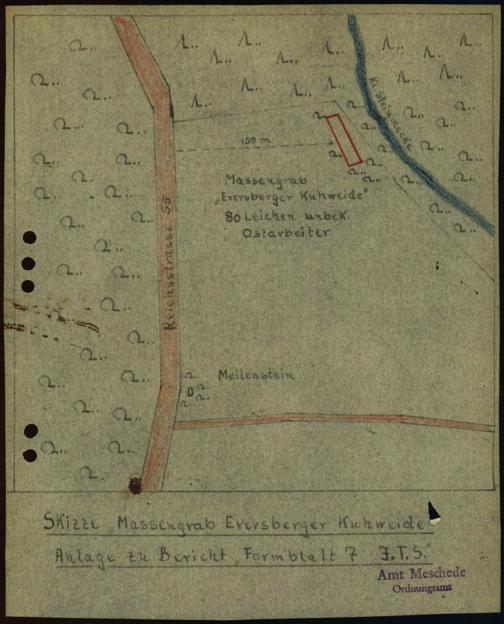 Kl. Steinmecke
150 m
Massengrab
„Eversberger Kuhweide"
80 Leichen unbek.
Ostarbeiter
Reichsstrasse 55
Meilenstein
Skizze „Massengrab Eversberger Kuhweide"
Anlage zu Bericht „Formblatt 7 I.T.S."
Amt Meschede
Ordnungsamt